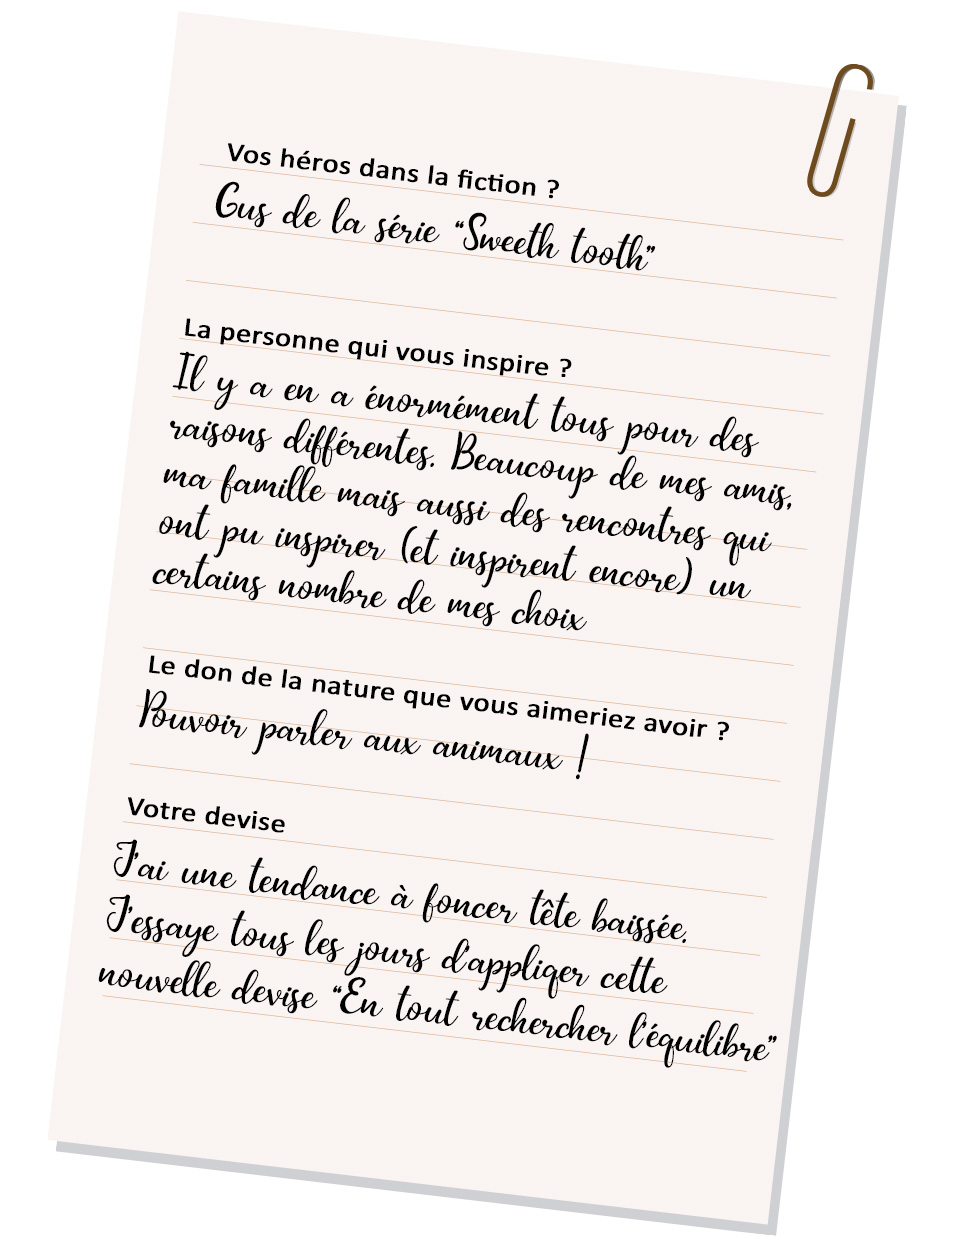 Vos héros dans la fiction ?
Gus de la série “Sweeth tooth”
La personne qui vous inspire ?
Il y a en a énormément tous pour des
raisons différentes. Beaucoup de mes amis,
ma famille mais aussi des rencontres qui
ont pu inspirer (et inspirent encore) un
certains nombre de mes choix
Le don de la nature que vous aimeriez avoir ?
Pouvoir parler aux animaux !
Votre devise
J'ai une tendance à foncer tête baissée.
J'essaye tous les jours d'appliqer cette
nouvelle devise “En tout rechercher l'équilibre”